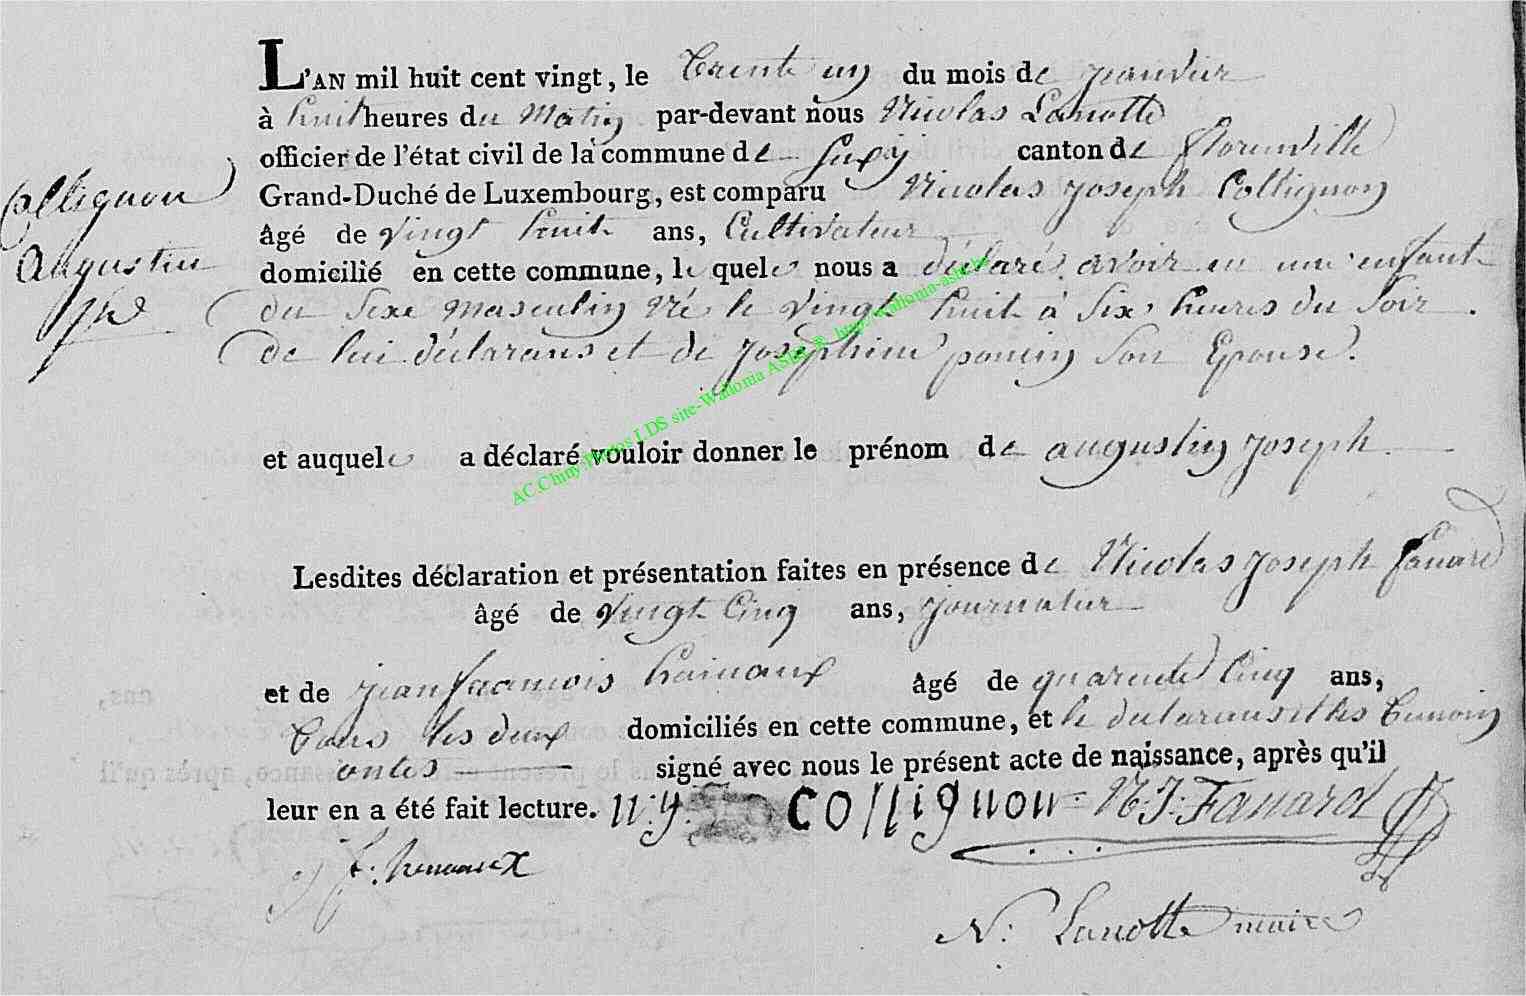 L'AN mil huit cent vingt, le trente un du mois de janvier
à huit heures du Matin par-devant nous Nicolas Lanotte
officier de l'état civil de la commune de Suxÿ canton de florenville
Grand-Duché de Luxembourg, est comparu Nicolas joseph Collignon
âgé de vingt huit ans, Cultivateur
domicilié en cette commune, le quel nous a déclaré avoir eu un enfant
du sexe masculin Né le vingt huit à six heures du soir.
de lui déclarans et de josephine poncin son Epouse.
Collignon
Augustin
jph
et auquel a déclaré vouloir donner le prénom de augustin joseph
Lesdites déclaration et présentation faites en présence de Nicolas joseph fanard
âgé de vingt Cinq ans, journalier
et de jean francois hainaux âgé de quarente Cinq ans,
tous les deux domiciliés en cette commune, et le declarans et les temoin
ontes signé avec nous le présent acte de naissance, après qu'il
leur en a été fait lecture. n. j. collignon N. J. Fanard
j f. henaux
N. Lanotte maire
AC.Chiny-Photos LDS site-Wallonia ASBL & http://wallonia-asbl.be